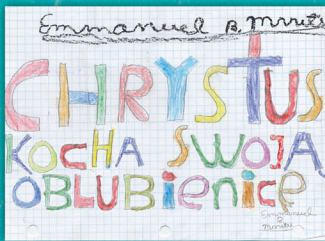 Emmanuel B.
CHRYSTUS
KOCHA SWOJA
OBLUBIENICE
Emmanuel
B.